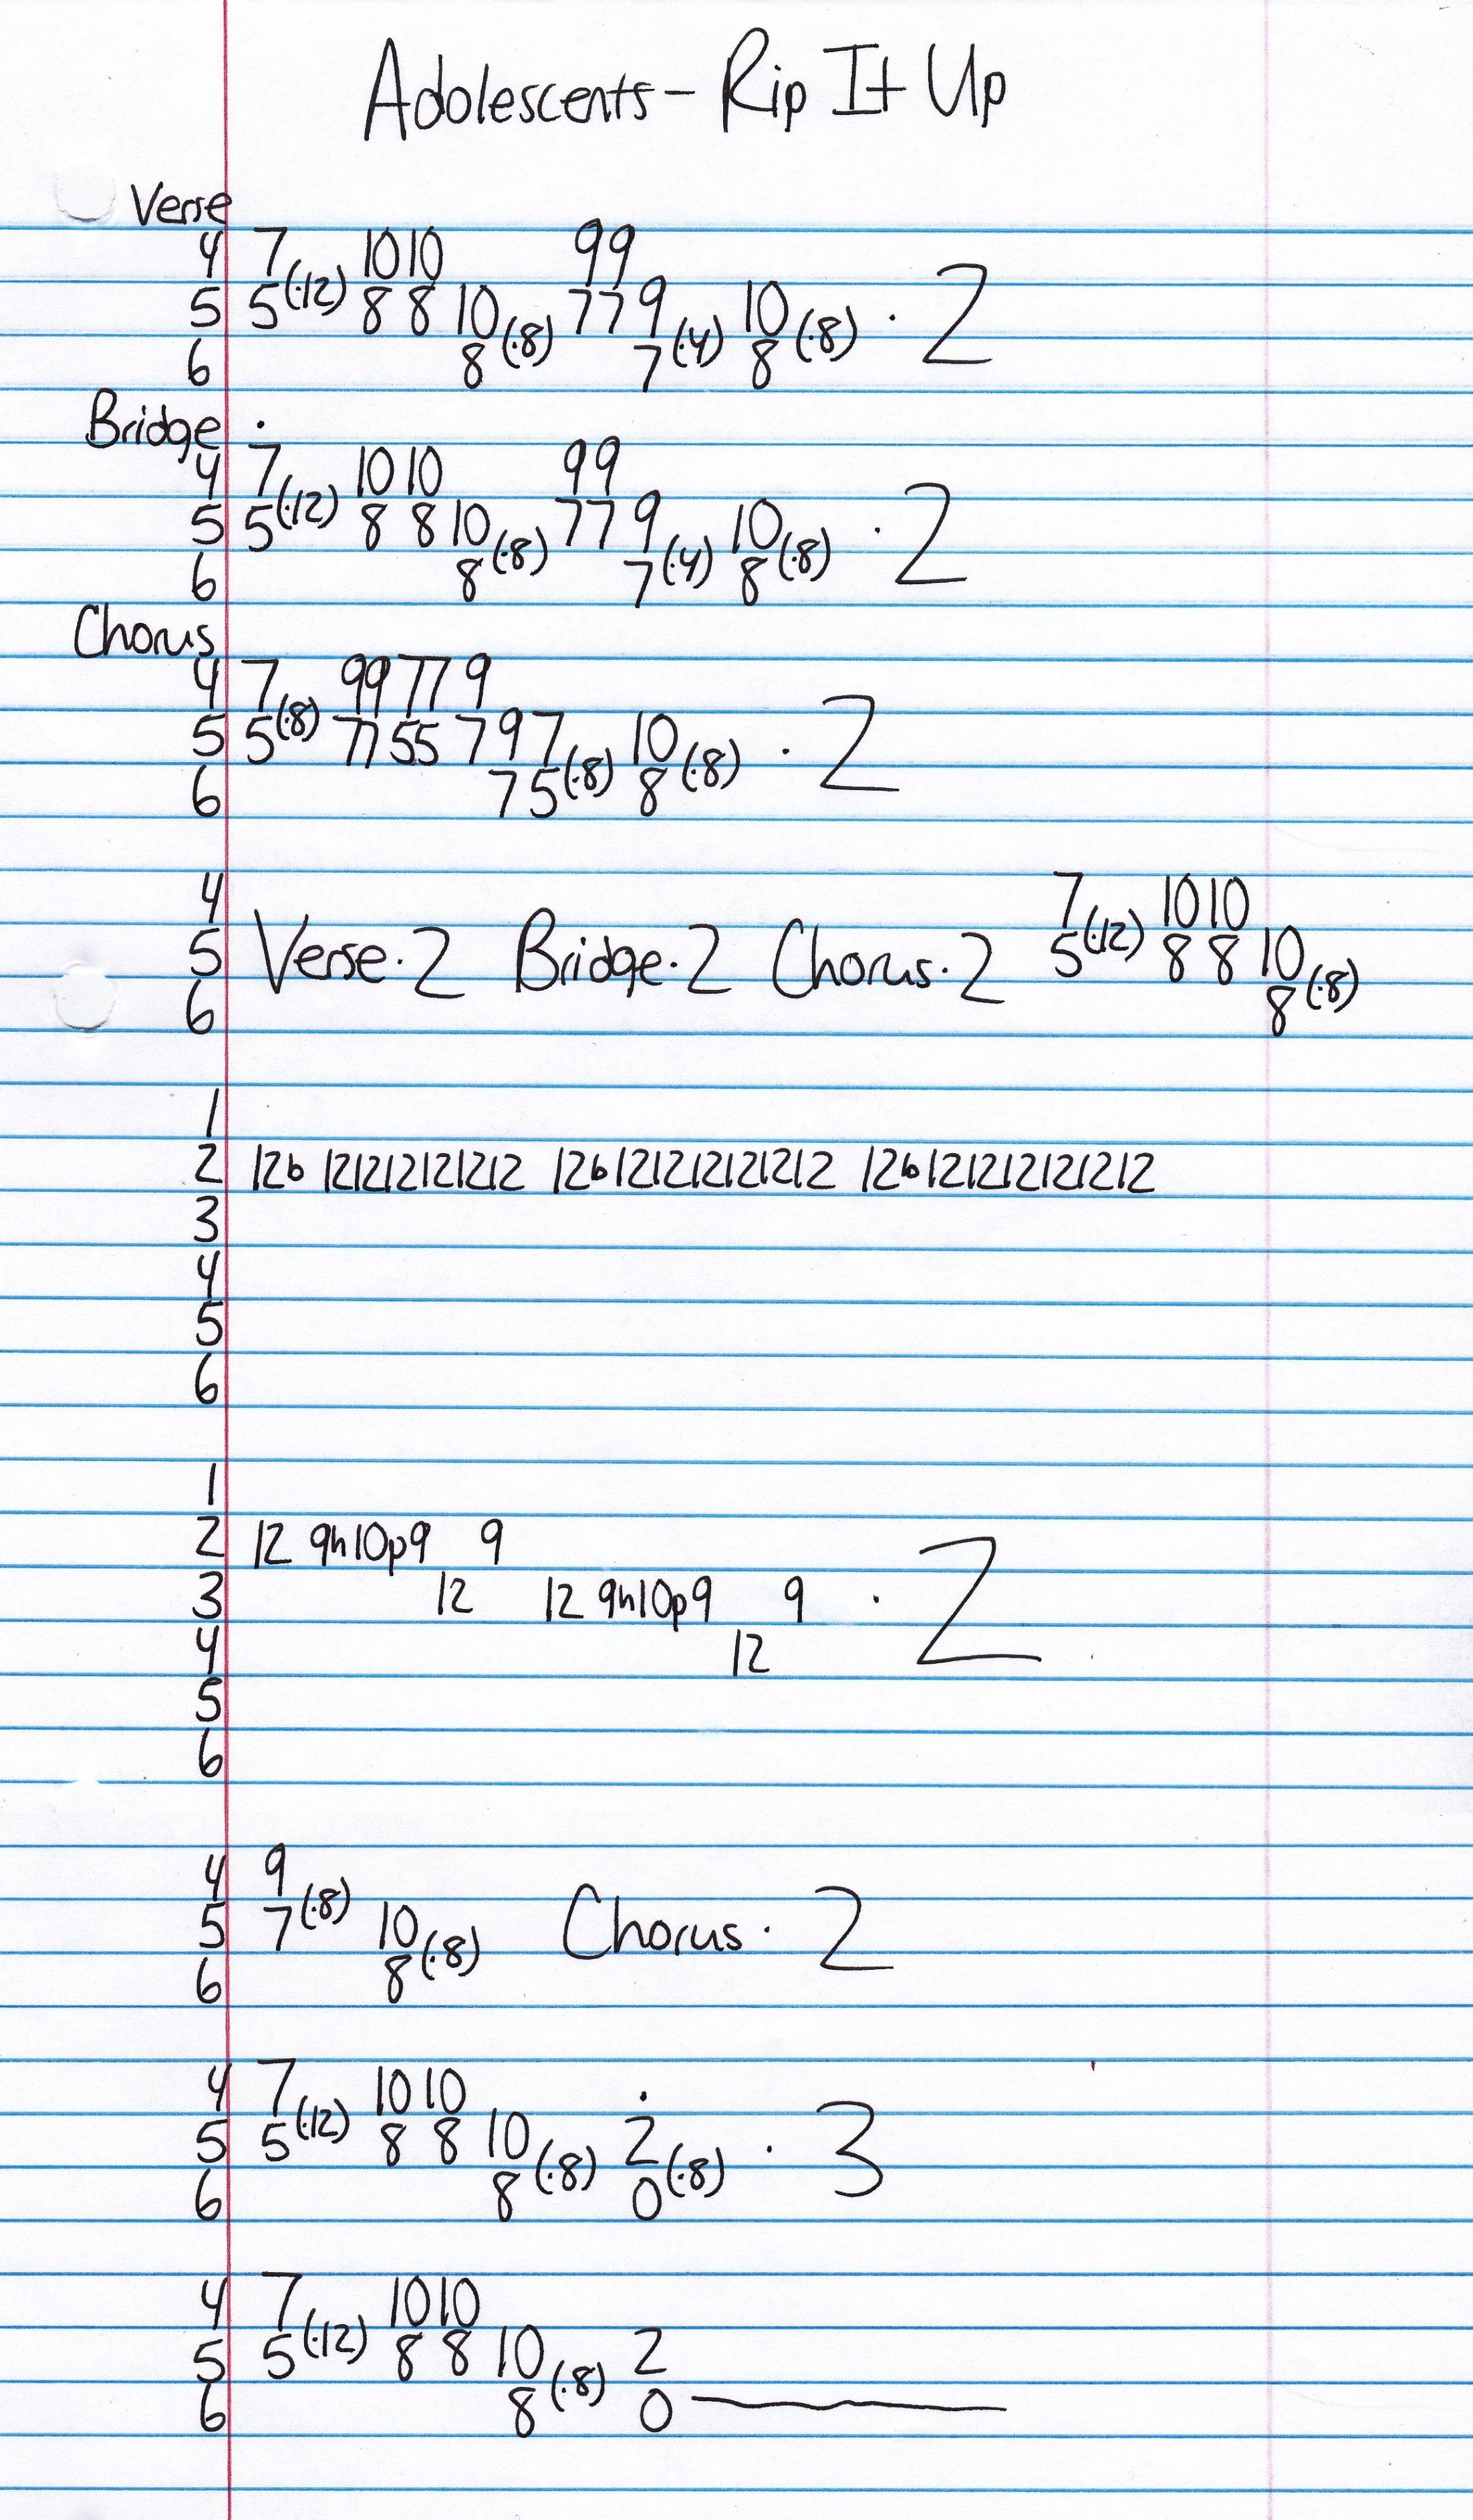 Adolescents - Rip It Up
Verse
4 7 10 10 99
5 5(·12) 8 8 10 77 9 10 · 2
6 8(·8) 7(·4) 8(·8)
Bridge
4 7 10 10 99
5 5(·12) 8 8 10 77 9 10 · 2
6 8(·8) 7(·4) 8(·8)
Chorus
4 7 99 77 9
5 5(·8) 77 55 7 9 7 10 · 2
6 7 5(·8) 8(·8)
4 7 10 10
5 Verse·2 Bridge·2 Chorus·2 5(·12) 8 8 10
6 8(·8)
1
2 12b 121212121212 12b 12121212121212 12b 12121212121212
3
4
5
6
1
2 12 9h10p9 9
3 12 12 9h10p9 9 · 2
4 12
5
6
4 9
5 7(·8) 10 Chorus · 2
6 8(·8)
4 7 10 10
5 5(·12) 8 8 10 2 · 3
6 8(·8) 0(·8)
4 7 10 10
5 5(·12) 8 8 10 2
6 8(·8) 0